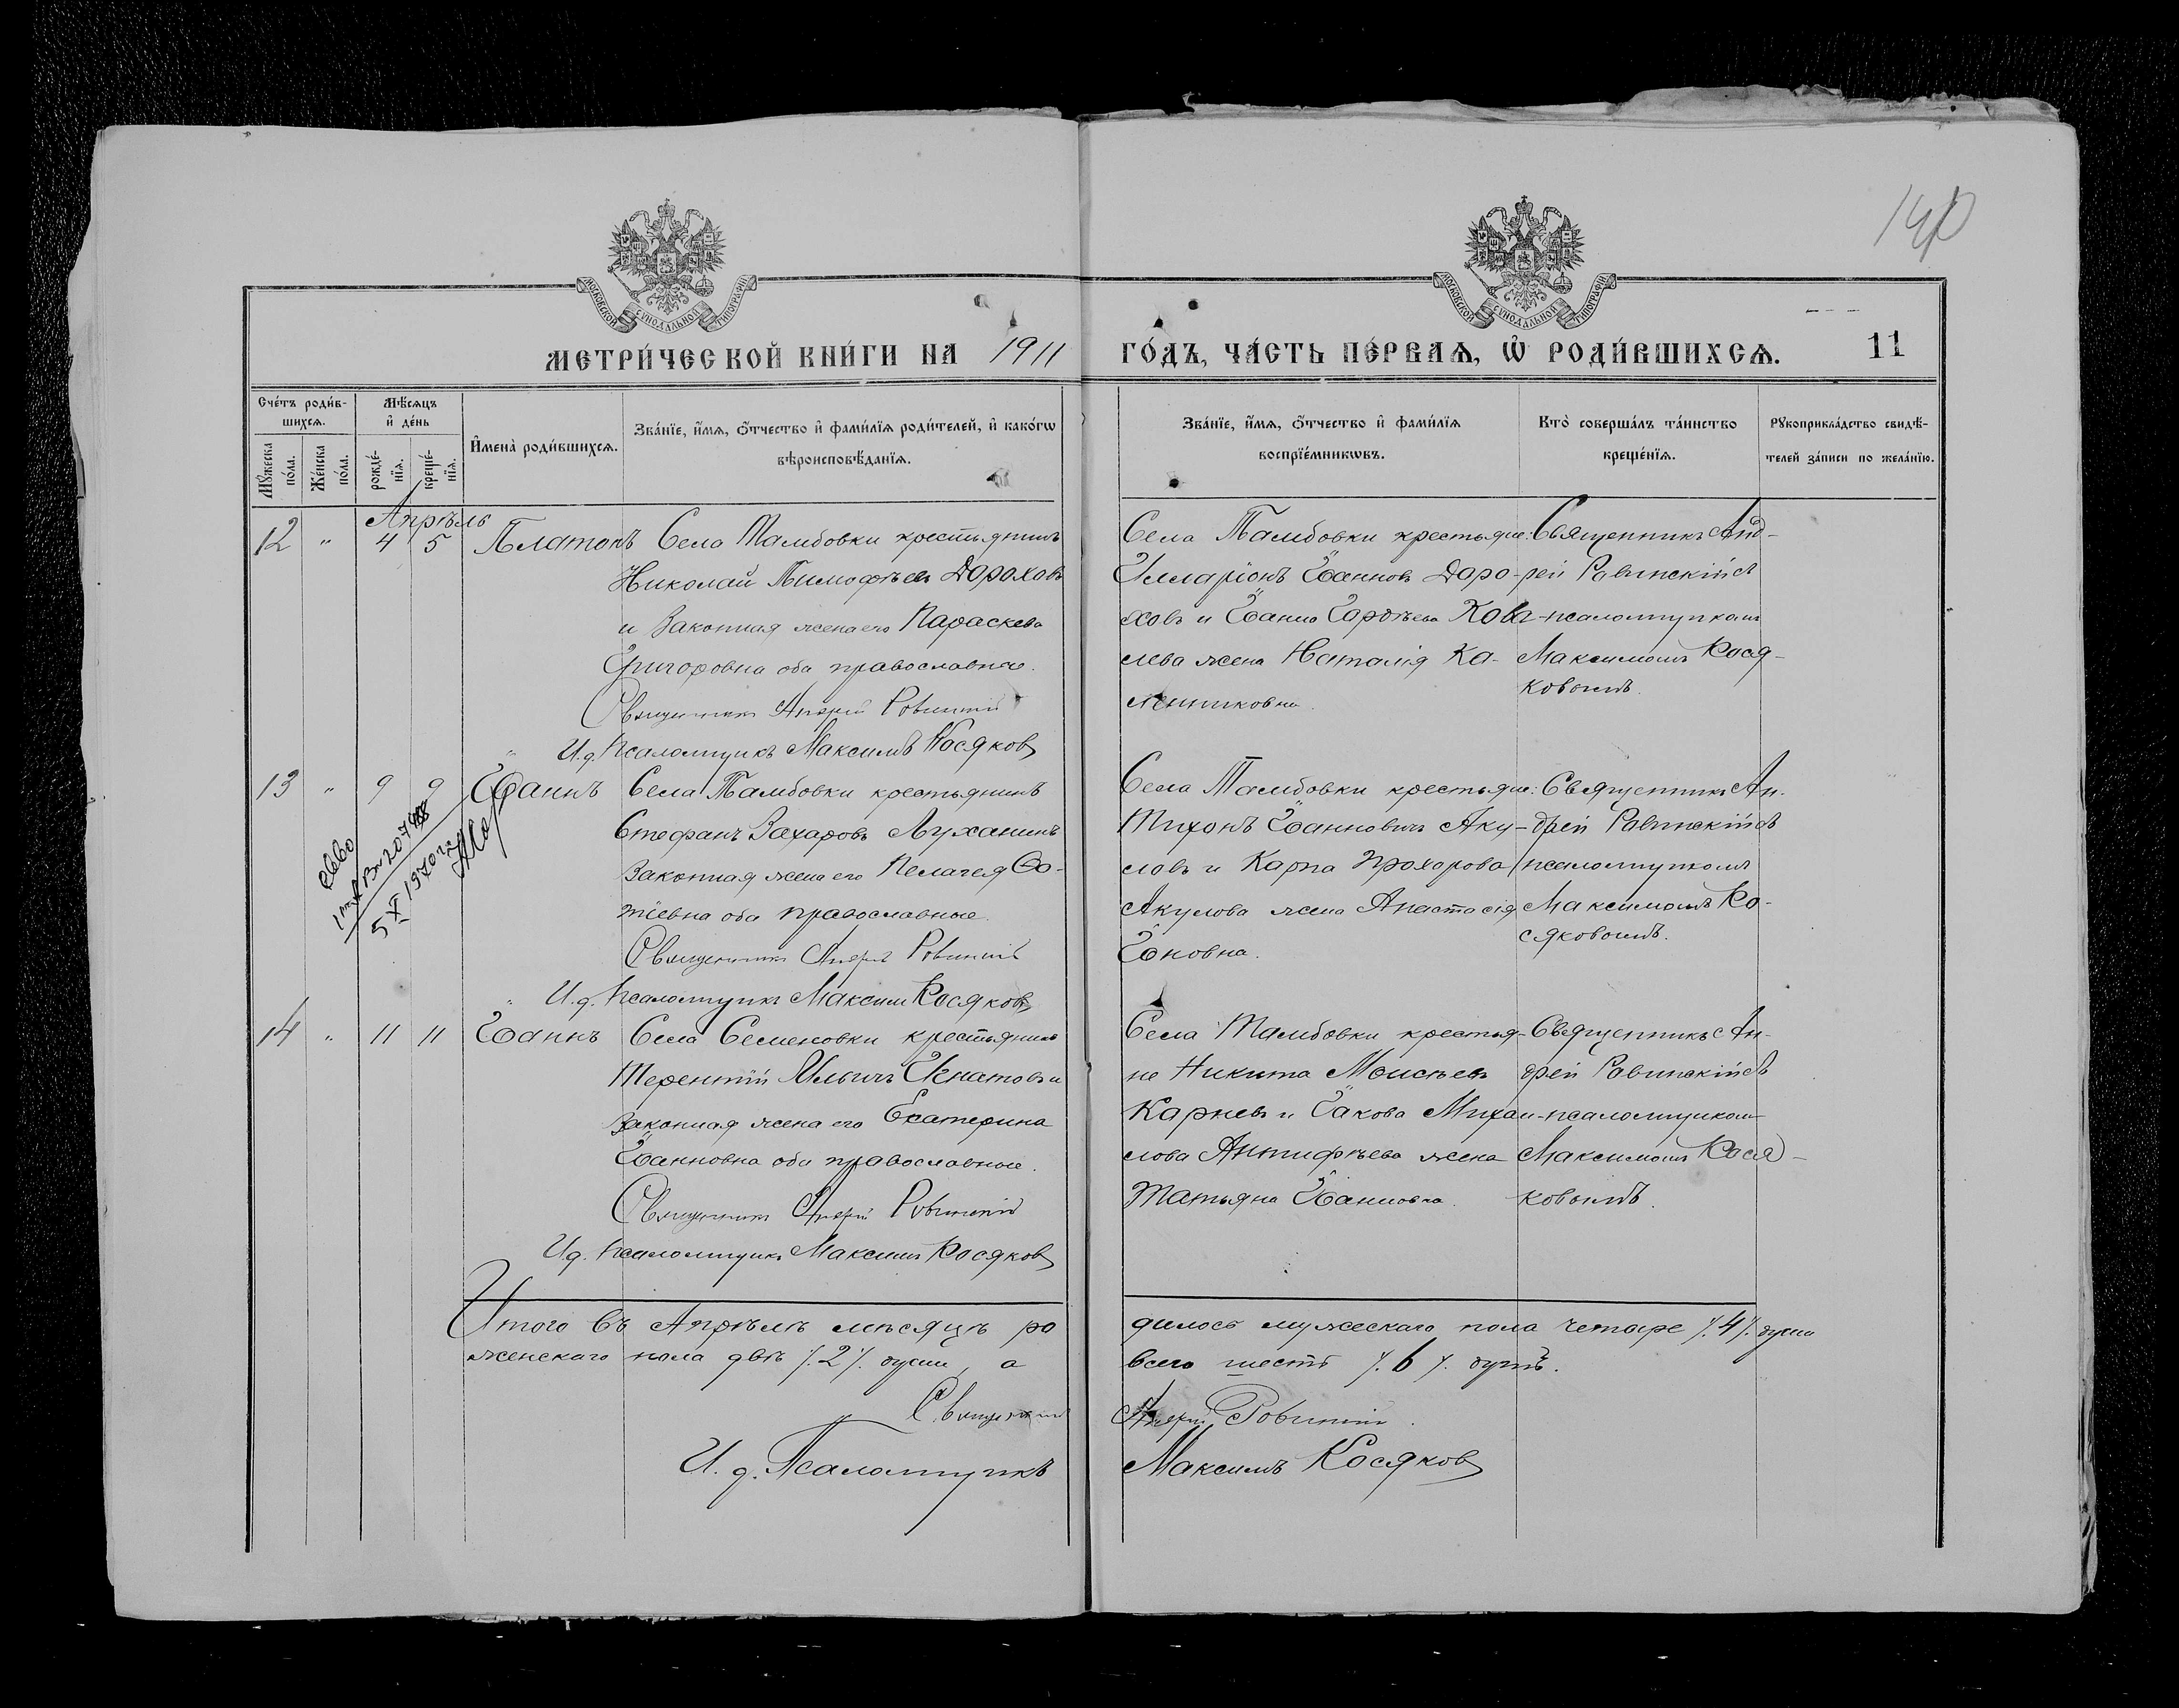 140
МОСКОВСКОЙ СѴНОДАЛЬНОЙ ТИПОГРАФІИ
МОСКОВСКОЙ СѴНОДАЛЬНОЙ ТИПОГРАФІИ
МЕТРИ́ЧЕСКОЙ КНИ́ГИ НА 1911 ГО́ДЪ, ЧА́СТЬ ПЕ́РВАѦ, Ѡ҆ РОДИ́ВШИХСѦ. 11
Сче́тъ роди́в-
шихсѧ.
Мꙋ́жеска по́ла.
Же́нска по́ла.
Мѣ́сѧцъ
и҆ де́нь
рожде́-
нїѧ.
креще́-
нїѧ.
И҆мена̀ роди́вшихсѧ.
Зва́нїе, и҆́мѧ, ѻ҆́тчество и҆ фами́лїѧ роди́телей, и҆ како́гѡ
вѣроисповѣ́данїѧ.
Зва́нїе, и҆́мѧ, ѻ҆́тчество и҆ фами́лїѧ
воспрїе́мникѡвъ.
Кто̀ соверша́лъ та́инство
креще́нїѧ.
Рꙋкоприкла́дство свидѣ́-
телей за́писи по жела́нїю.
Апрѣль
12 " 4 5 Платонъ Села Тамбовки крестьянинъ
Николай Тимофѣевъ Дороховъ
и законная жена его Параскева
Григоровна оба православные.
Священникъ Андрей Ровинскій
И.д. Псаломщикъ Максимъ Косяковъ
Села Тамбовки крестьяне:
Илларіонъ Іоанновъ Доро-
ховъ и Іоанна Гордѣева Кова-
лева жена Наталія Ка-
Священникъ Анд-
рей Ровинскій съ
псаломщикомъ
Максимомъ Кося-
ковымъ.
13 " 9 9 Іоаннъ Села Тамбовки крестьянинъ
Стефанъ Захаровъ Луханинъ
законная жена его Пелагея Фо-
тіевна оба православные.
Священникъ Андрей Ровинскій
И.д. Псаломщикъ Максим Косяковъ
5 X 1970 г.
Села Тамбовки крестьяне:
Тихонъ Іоанновичъ Аку-
ловъ и Карпа Прохорова
Акулова жена Анастасія
Іоновна.
Священникъ Ан-
дрей Ровинскій съ
псаломщикомъ
Максимомъ Ко-
сяковымъ.
14 " 11 11 Іоаннъ Села Семеновки крестьянинъ
Терентій Ильичъ Игнатовъ и
законная жена его Екатерина
Іоанновна оба православные.
Священникъ Андрей Ровинскій
И.д. Псаломщикъ Максимъ Косяковъ
Села Тамбовки крестья-
не Никита Моисѣевъ
Карневъ и Іакова Михаи-
лова Антифѣева жена
Татьяна Іоанновна.
Священникъ Ан-
дрей Ровинскій съ
псаломщиком
Максимомъ Кося-
ковымъ.
Итого въ Апрѣлѣ мѣсяцѣ ро
дилось мужескаго пола четыре /.4/. души
женскаго пола двѣ /.2/. души, а
всего шесть /.6/. душъ.
Священникъ Андрей Ровинскій.
И. д. Псаломщикъ Максимъ Косяковъ